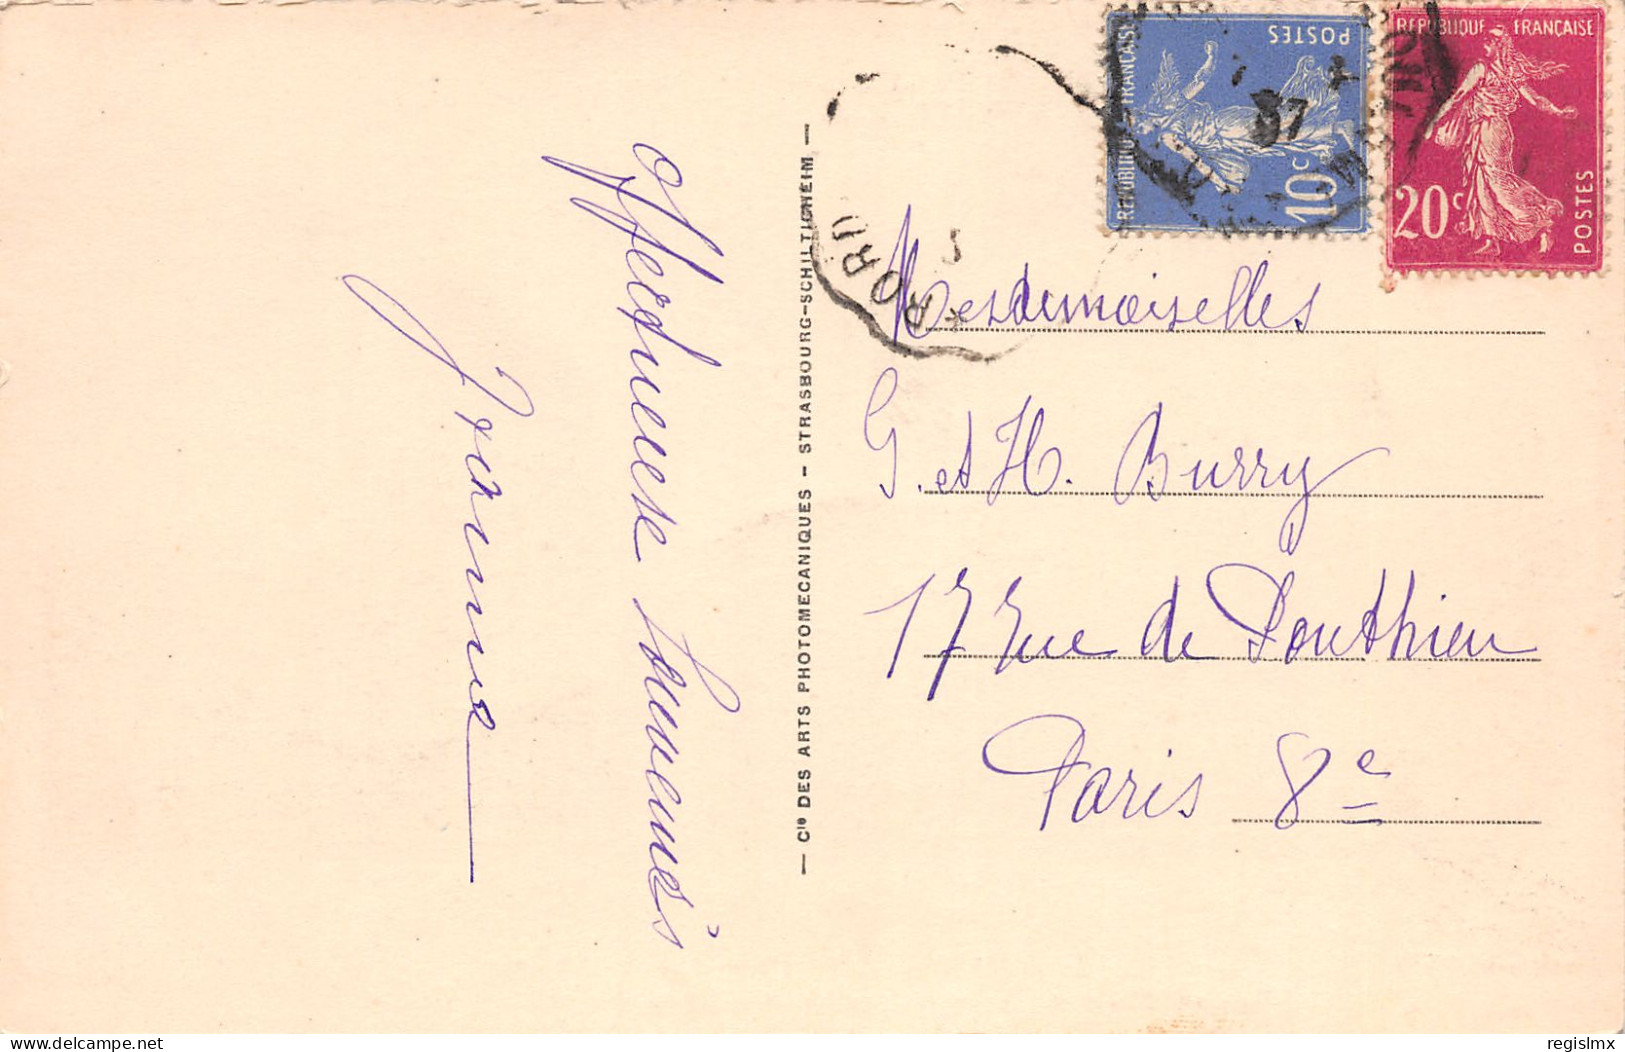 Affectueux Souvenirs
Yvonne
— Cie DES ARTS PHOTOMECANIQUES - STRASBOURG-SCHILTIGHEIM —
REPUBLIQUE FRANÇAISE
POSTES
10c
REPUBLIQUE FRANÇAISE
20c
POSTES
37
Mesdemoiselles
G. et H. Burry
17 rue de Ponthieu
Paris 8e
delcampe.net
regislmx